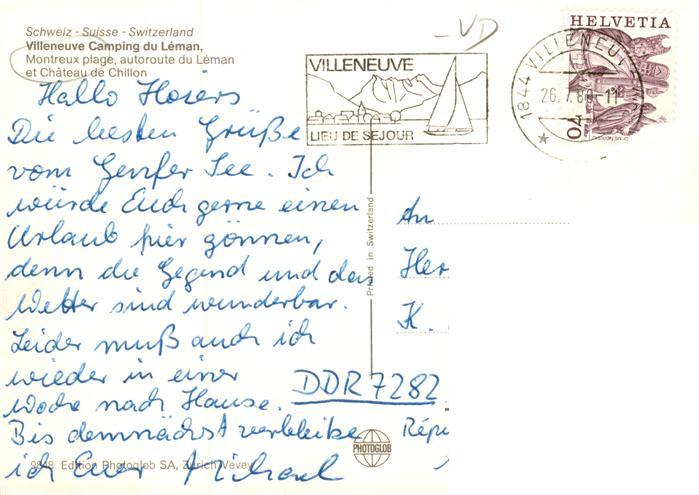 Schweiz - Suisse - Switzerland
Villeneuve Camping du Léman,
Montreux plage, autoroute du Léman
et Château de Chillon
Hallo Hoiers
Die besten Grüße
vom Genfer See. Ich
würde Euch gerne einen
Urlaub hier gönnen,
denn die Gegend und das
Wetter sind wunderbar.
Leider muß auch ich
wieder in einer
Woche nach Hause.
Bis demnächst verbleibe
ich Euer Michael
9848 Edition Photoglob SA, Zürich/Vevey
Printed in Switzerland
VD
VILLENEUVE
LIEU DE SEJOUR
1844 VILLENEUVE
HELVETIA
An
Her
K.
DDR 7282
Répu
PHOTOGLOB